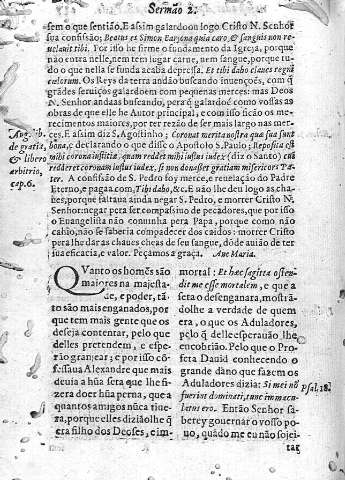 Sermão 2.
sem o que sentião. E assim galardoou logo Cristo N. Senhor
sua confissão; Beatus es Simon Barjona quia caro, & sanguis non re-
uelauit tibi. Por isso he firme o fundamento da Igreja, porque
não entra nelle, nem tem lugar carne, nem sangue, porque tu-
do o que nella se funda acaba depressa. Et tibi dabo claues regni
cælorum. Os Reys da terra andão buscando inuenções, com q̃
grãdes seruiços galardoem com pequenas merces: mas Deos
N. Senhor andaas buscando, pera q̃ galardoé como vossas as
obras de que elle he Autor principal, e com isso ficão os me-
recimentos maiores, por ter rezão de ser mais largo nas mer-
cês. E assim diz S. Agostinho; Coronat merita nostra quæ sua sunt
bona, c declarando o que disse o Apostolo S. Paulo; Reposita est
mihi corona iustitiæ, quam reddet mihi iustus iudex; (diz o Santo) cui
redderet coronam iustus iudex, si non donasset gratiam misericors Pa-
ter. A confissão de S. Pedro foy merce, e reuelação do Padre
Eterno, e pagaa com, Tibi dabo, &c. E não lhe deu logo as cha-
ues, porque faltaua ainda negar S. Pedro, e morrer Cristo N.
Senhor: negar pera ser compassiuo de pecadores, que por isso
o Euangelista não conuinha pera Papa, porque como não
cahio, não se saberia compadecer dos caidos: morrer Cristo
pera lhe dar as chaues cheas de seu sangue, dõde auião de ter
sua eficacia, e valor. Peçamos a graça. Aue Maria.
Aug. lib.
de gratia,
& libero
arbitrio,
cap. 6.
Quanto os homẽs são
maiores na majesta-
de, e poder, tã-
to são mais enganados, por
que tem mais gente que os
deseja contentar, pelo que
delles pretendem, e espe-
rão granjear; e por isso cõ-
fessaua Alexandre que mais
deuia a hũa seta que lhe fi-
zera doer hũa perna, que a
quantos amigos nũca tiue-
ra, porque elles dizião lhe q̃
era filho dos Deoses, e im-
mortal: Et hæc sagitta osten-
dit me esse mortalem, e que a
seta o desenganara, mostrã-
dolhe a verdade de quem
era, o que os Aduladores,
pelo q̃ delle esperauão lhe
encobrião. Pelo que o Pro-
feta Dauid conhecendo o
grande dano que fazem os
Aduladores dizia: Si mei nõ
fuerint dominati, tunc immacu-
latus ero. Então Senhor sa-
berey gouernar o vosso po-
uo, quãdo me eu não sojei-
Psal. 18.
tar